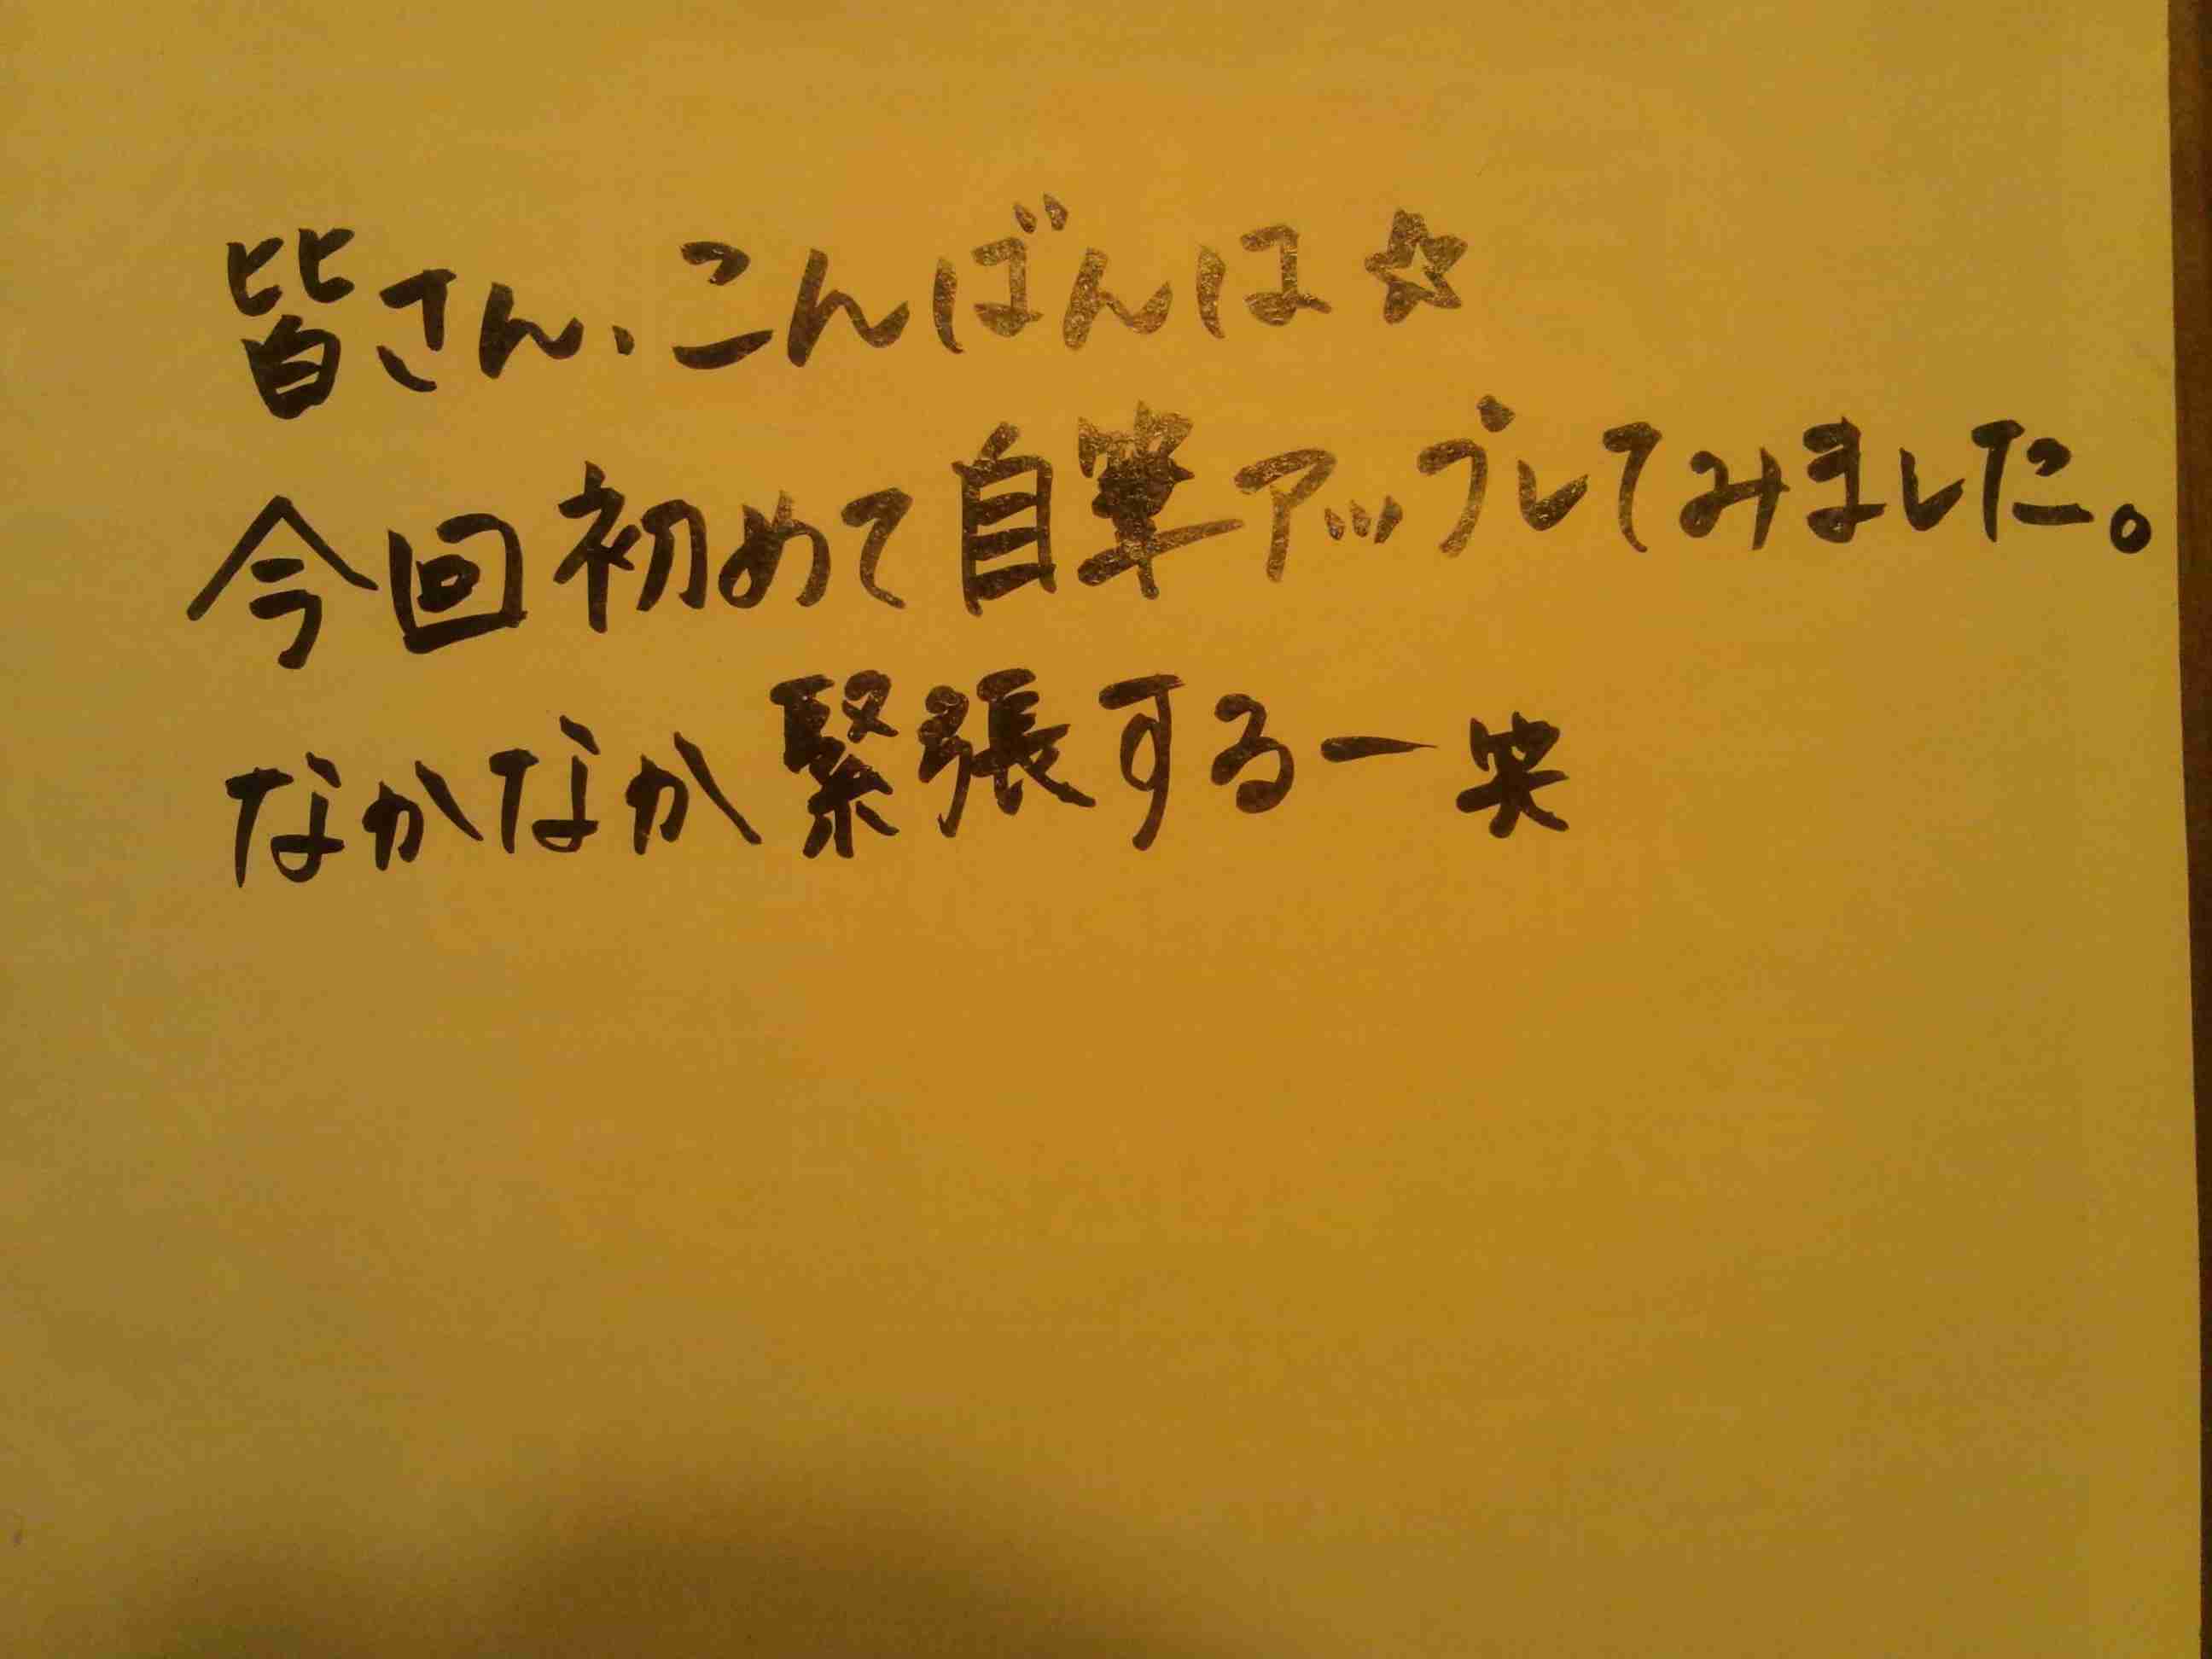 皆さん、こんばんは☆
今回初めて自筆アップしてみました。
なかなか緊張するー笑